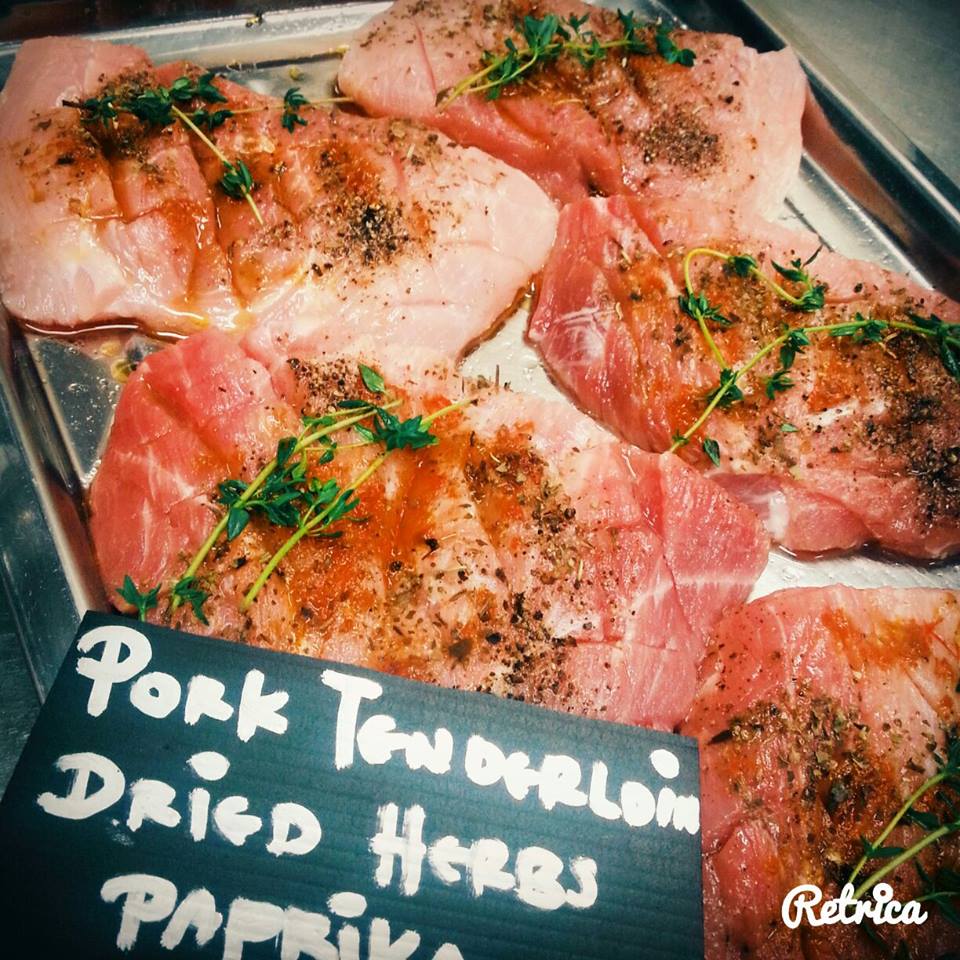 Pork Tenderloin
Dried Herbs
Paprika
Retrica